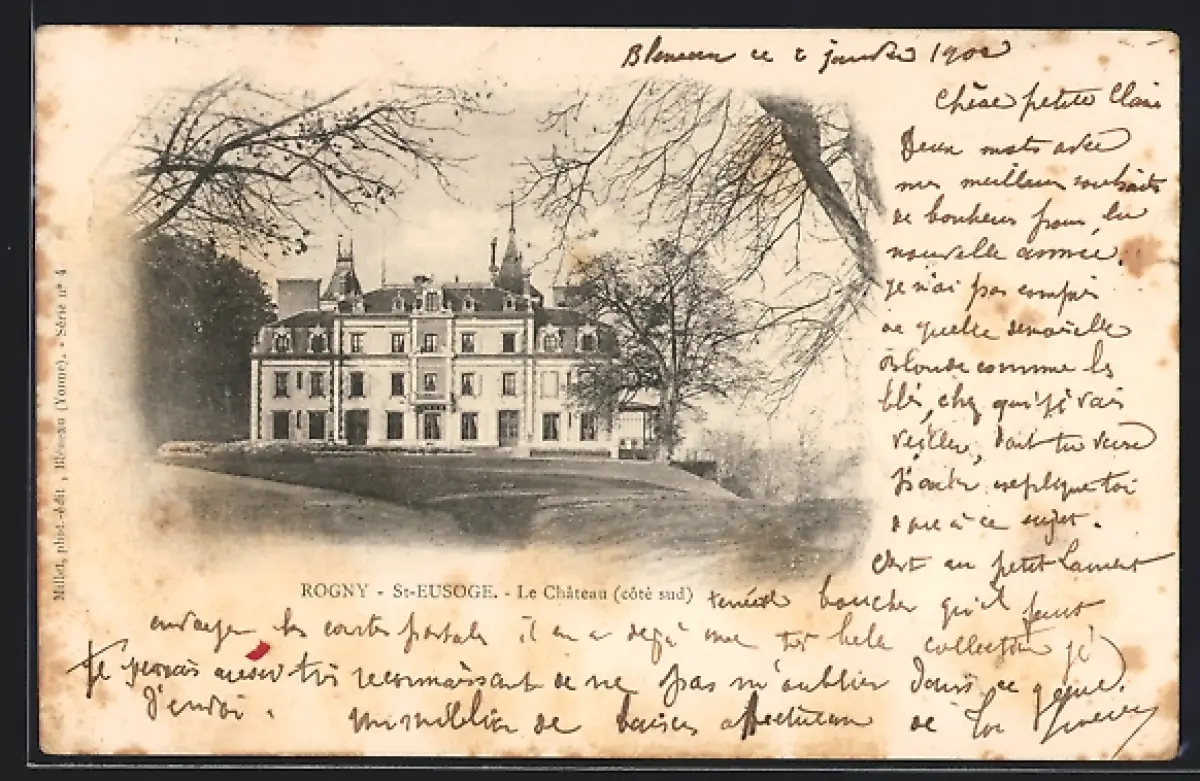 Bleneau ce 2 janvier 1902
Chère petite Claire
Deux mots avec
mes meilleurs souhaits
de bonheur pour la
nouvelle année,
je n'ai pas compris
de quelle demoiselle
Blonde comme les
blés, chez qui j'irais
veiller, dont tu veux
parler, explique toi
donc à ce sujet.
C'est au petit Laurent
boucher qu'il faut
envoyer les cartes postale il en a dejà une très belle collection
Je serais aussi très reconnaissant de ne pas m'oublier dans ce genre
d'envoi. Un million de baisers affectueux de ton
ROGNY - St-EUSOGE. - Le Château (côté sud)
Millet, phot.-édit, Bléneau (Yonne). - Série nº 4